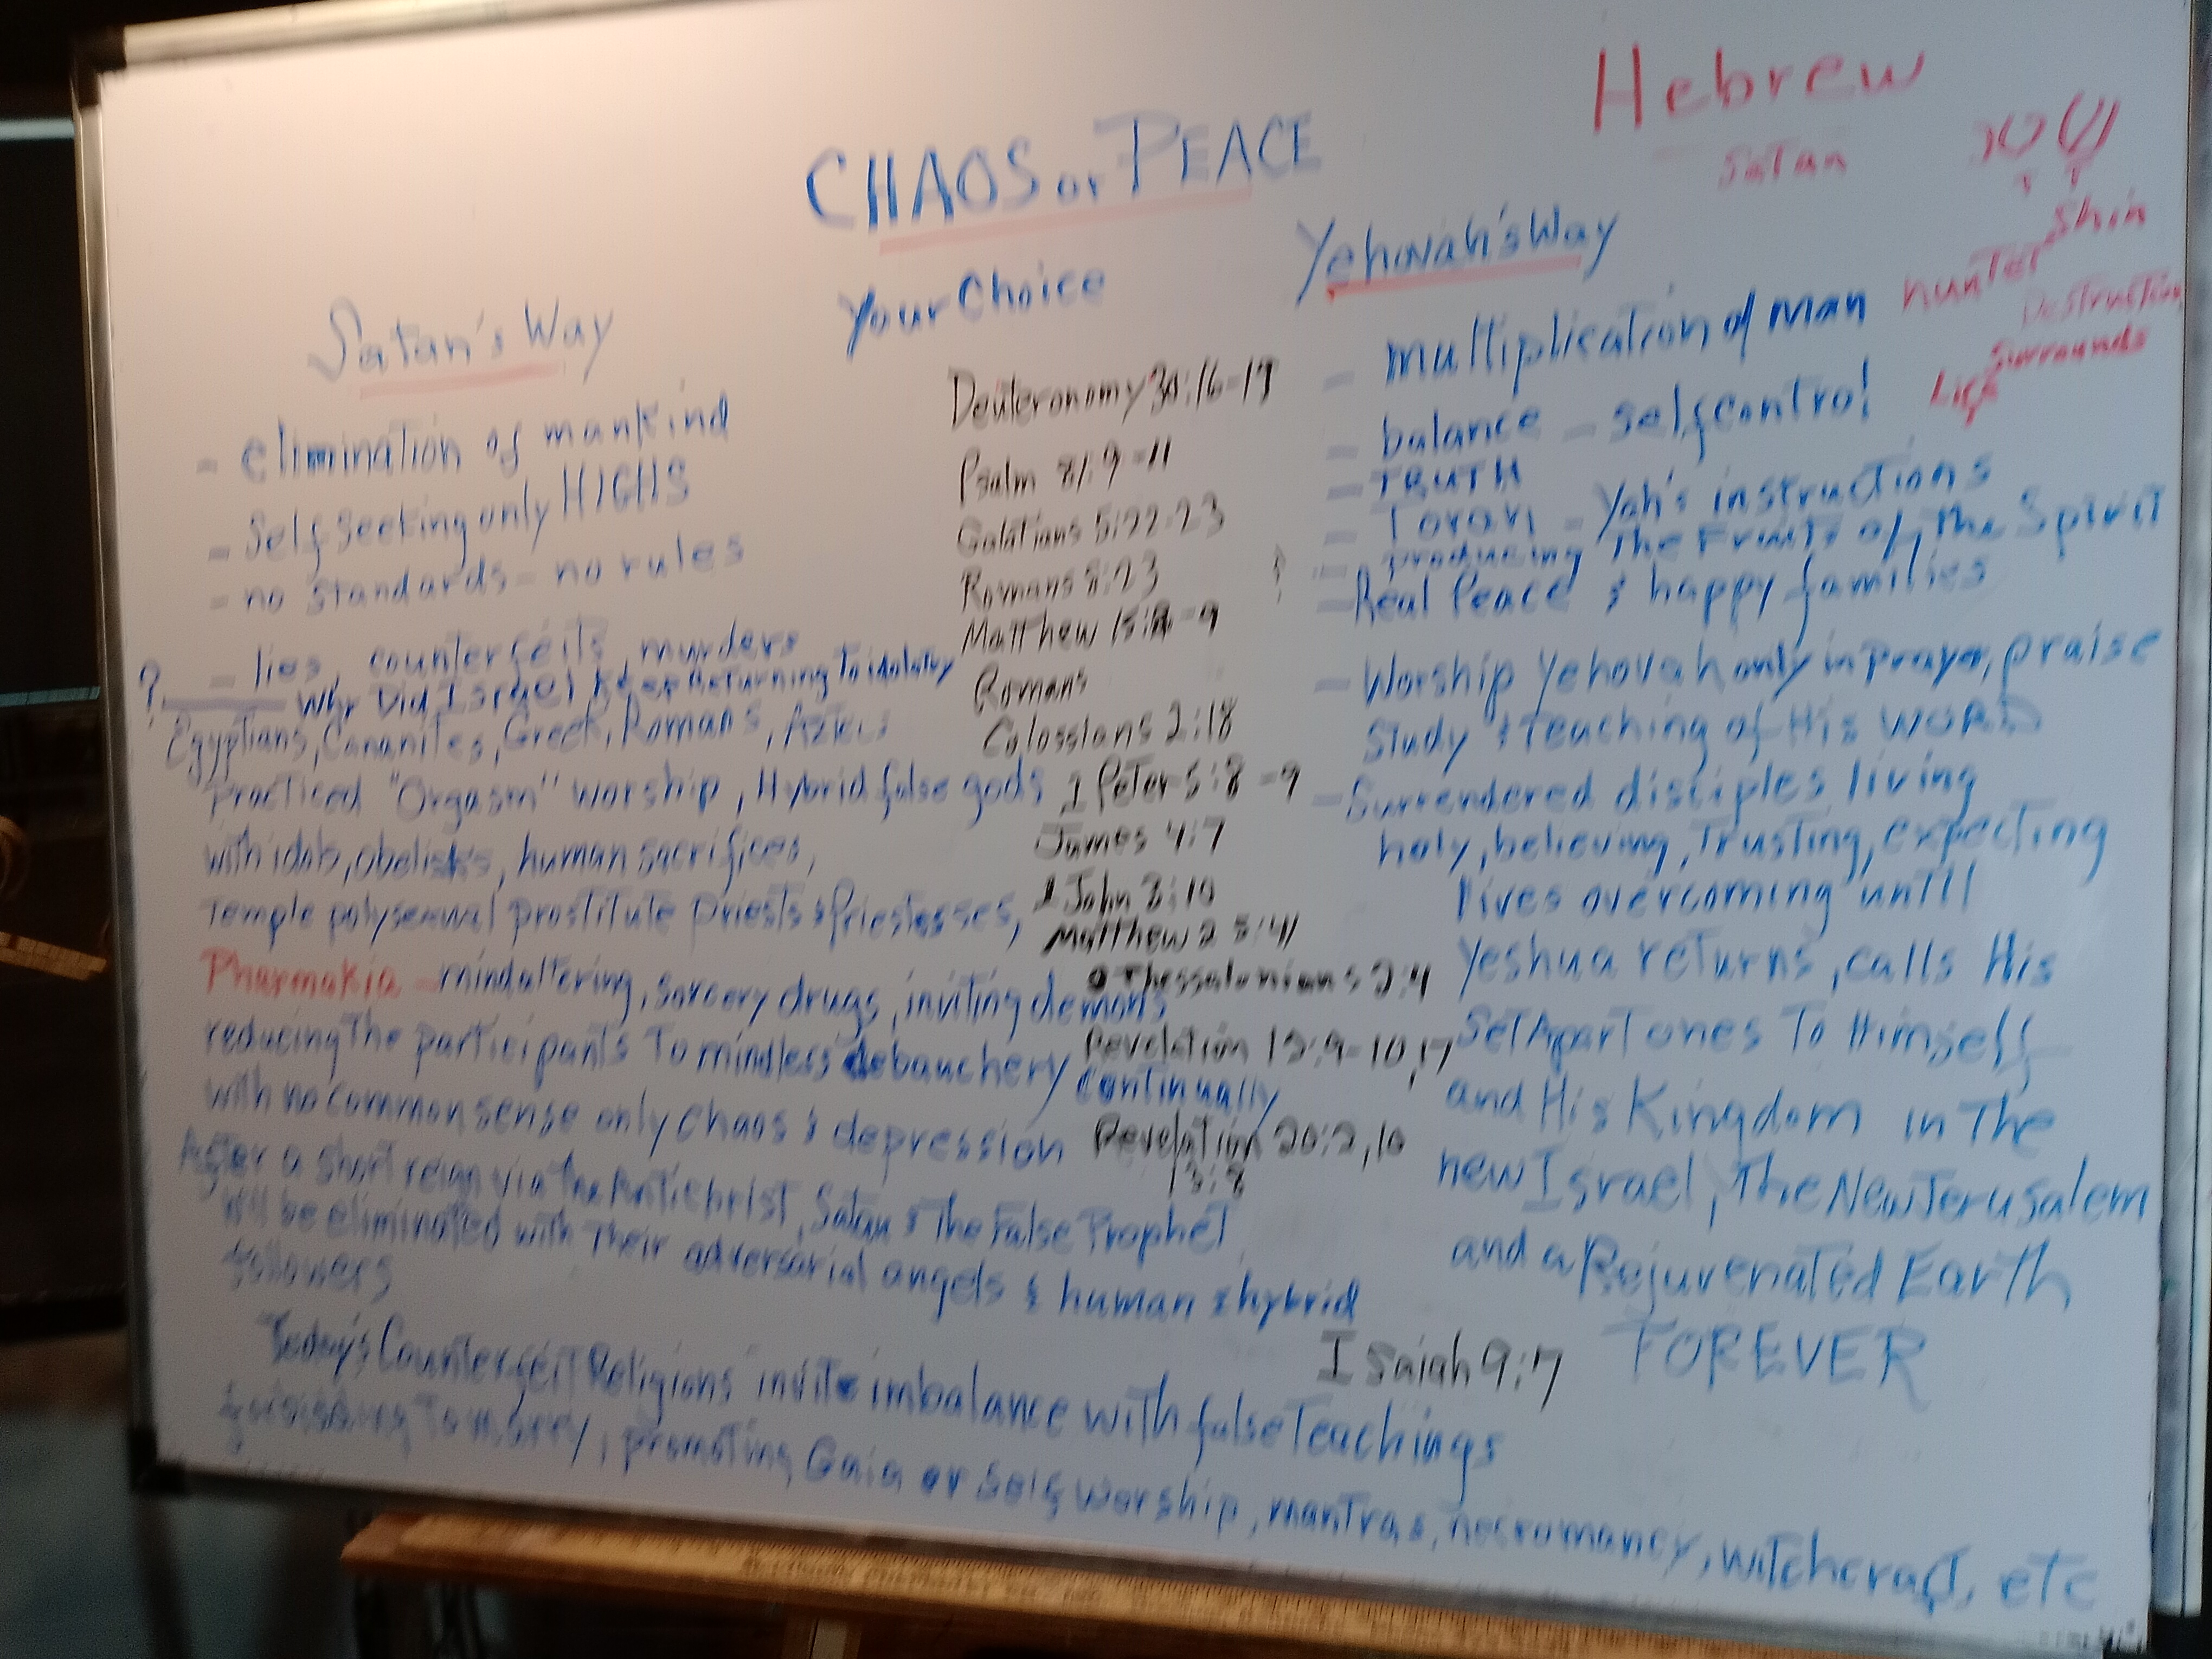 Hebrew
Satan
Shin
hunter
Destruction
Surrounds
Life
CHAOS or PEACE
Your Choice
Satan's Way
- elimination of mankind
- Self seeking only HIGHS
- no standards - no rules
- lies, counterfeits, murders
? Why Did Israel Keep Returning To idolatry
Egyptians, Cananites, Greek, Romans, Aztecs
Practiced "Orgasm" worship, Hybrid false gods
with idols, obelisks, human sacrifices,
Temple polysexual prostitute Priests & Priestesses,
Pharmakia - mindaltering, sorcery drugs, inviting demons
reducing the participants To mindless debauchery continually
with no common sense only chaos & depression
After a short reign via the Antichrist, Satan & The False Prophet
will be eliminated with Their adversarial angels & human & hybrid
followers
Today's Counterfeit Religions invite imbalance with false Teachings
To marry, promoting Gaia or Self worship, mantras, necromancy, witchcraft, etc
Deuteronomy 30:16-19
Psalm 81:9-11
Galatians 5:22-23
Romans 8:23
Matthew 15: -9
Romans
Colossians 2:18
1 Peter 5:8-9
James 4:7
1 John 3:10
Matthew 25:41
Thessalonians 2:4
Revelation 12:9-10,17
Revelation 20:2,10
13:8
Isaiah 9:7
Yehovah's Way
- multiplication of Man
- balance - selfcontrol
- TRUTH
- Torah - Yah's instructions
- producing The Fruits of The Spirit
- Real Peace & happy families
- Worship Yehovah only in prayer, praise
Study & Teaching of His WORD
- Surrendered disciples living
holy, believing, Trusting, expecting
lives overcoming until
Yeshua returns, calls His
SetApart ones To Himself
and His Kingdom in The
new Israel, The New Jerusalem
and a Rejuvenated Earth
FOREVER